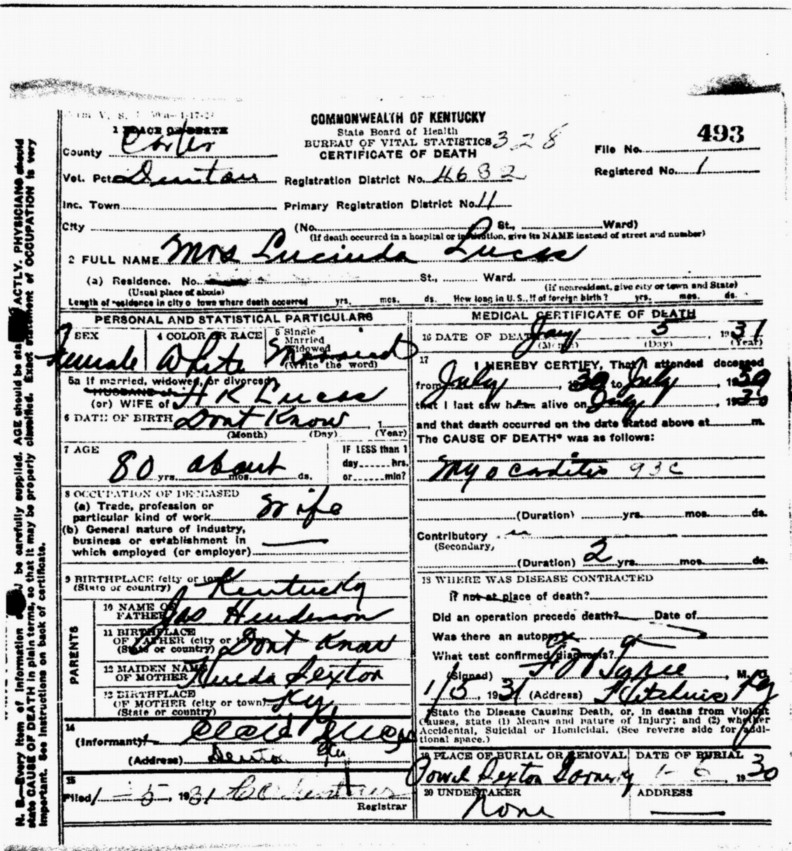 COMMONWEALTH OF KENTUCKY
State Board of Health
BUREAU OF VITAL STATISTICS 328
CERTIFICATE OF DEATH
File No. 493
Registered No. 1
1 PLACE OF DEATH
County Carter
Vot. Pct. Denton
Registration District No. 4632
Inc. Town
Primary Registration District No. 11
City (No. St., Ward)
(If death occurred in a hospital or institution, give its NAME instead of street and number)
2 FULL NAME Mrs Lucinda Lucas
(a) Residence. No. St., Ward.
(Usual place of abode) (If nonresident, give city or town and State)
Length of residence in city or town where death occurred yrs. mos. ds. How long in U.S., if of foreign birth? yrs. mos. ds.
PERSONAL AND STATISTICAL PARTICULARS
SEX Female
4 COLOR OR RACE White
5 Single
Married
Widowed
Married
(Write the word)
5a If married, widowed, or divorced
HUSBAND of
(or) WIFE of H K Lucas
6 DATE OF BIRTH Dont Know 1
(Month) (Day) (Year)
7 AGE
80 yrs. about mos. ds.
IF LESS than 1
day hrs.
or min?
8 OCCUPATION OF DECEASED
(a) Trade, profession or
particular kind of work Wife
(b) General nature of industry,
business or establishment in
which employed (or employer)
9 BIRTHPLACE (city or town)
(State or country) Kentucky
PARENTS
10 NAME OF
FATHER Jas Henderson
11 BIRTHPLACE
OF FATHER (city or town)
(State or country) Dont Know
12 MAIDEN NAME
OF MOTHER Sexton
13 BIRTHPLACE
OF MOTHER (city or town) Ky
(State or country)
14
(Informant)
(Address) Denton Ky
15
Filed 1-5, 1931
Registrar
MEDICAL CERTIFICATE OF DEATH
16 DATE OF DEATH Jan 5 1931
(Month) (Day) (Year)
17 I HEREBY CERTIFY, That I attended deceased
from July, 1930 to July 1930
that I last saw her alive on July 1930
and that death occurred on the date stated above at m.
The CAUSE OF DEATH* was as follows:
Myocarditis 93C
(Duration) yrs. mos. ds.
Contributory
(Secondary)
(Duration) 2 yrs. mos. ds.
18 WHERE WAS DISEASE CONTRACTED
If not at place of death?
Did an operation precede death? Date of
Was there an autopsy?
What test confirmed diagnosis?
(Signed) M. D.
1/5, 1931 (Address) Ky
*State the Disease Causing Death, or, in deaths from Violent
Causes, state (1) Means and nature of Injury; and (2) whether
Accidental, Suicidal or Homicidal. (See reverse side for additional space.)
PLACE OF BURIAL OR REMOVAL
DATE OF BURIAL
Sexton 1-6 1930
20 UNDERTAKER
None
ADDRESS
N. B.—Every item of information should be carefully supplied. AGE should be stated EXACTLY. PHYSICIANS should
state CAUSE OF DEATH in plain terms, so that it may be properly classified. Exact statement of OCCUPATION is very
important. See instructions on back of certificate.